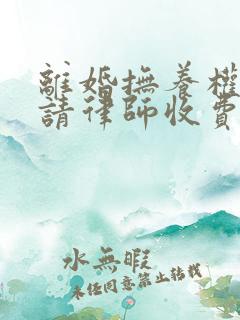 離婚撫養權
請律師收費
水無暇
未经同意禁止转载